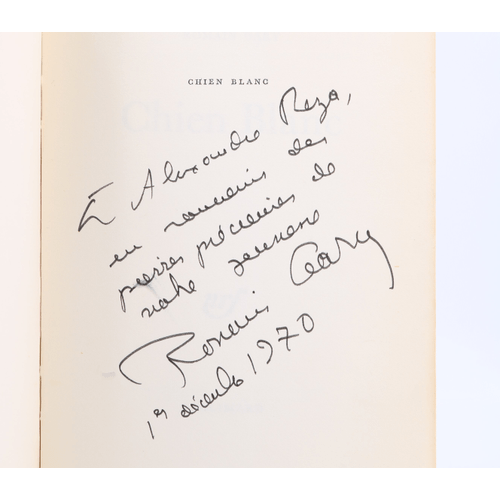 CHIEN BLANC
À Alexandre Reza,
en souvenir des
pierres précieuses de
notre jeunesse
Romain Gary
1er décembre 1970